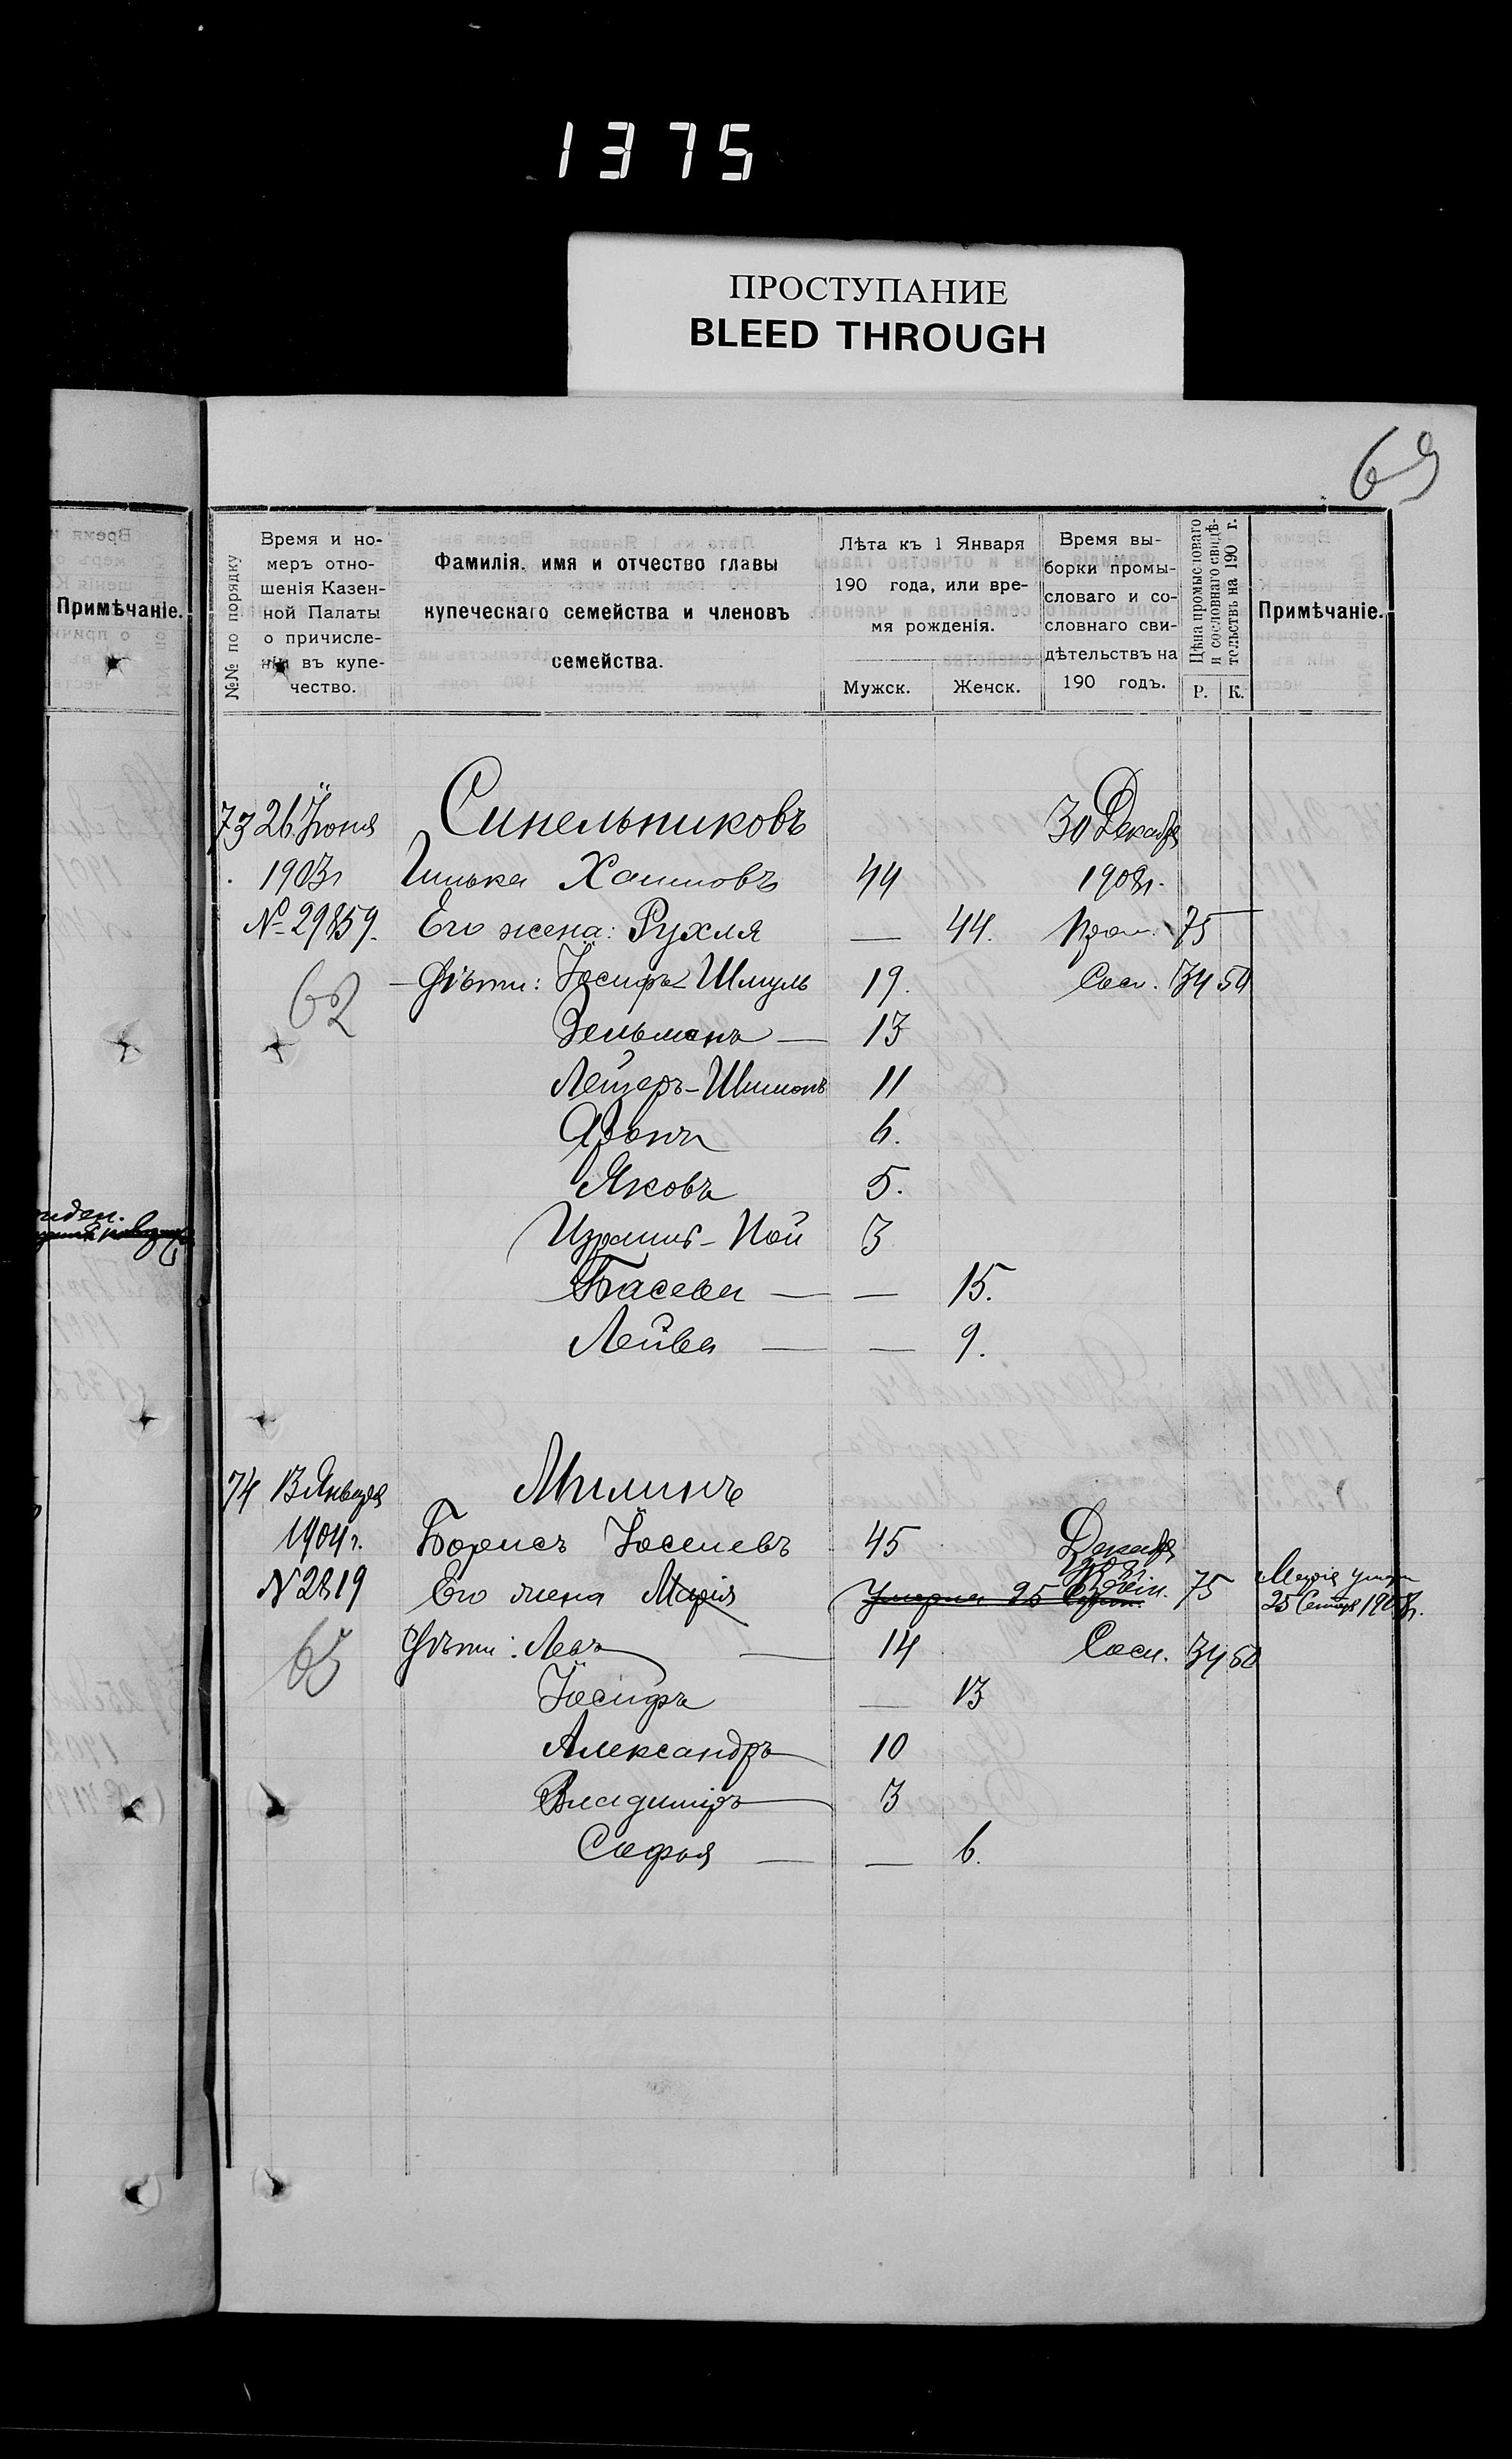 1375
ПРОСТУПАНИЕ
BLEED THROUGH
69
Примѣчаніе.
№№ по порядку
Время и но-
меръ отно-
шенія Казен-
ной Палаты
о причисле-
ніи въ купе-
чество.
Фамилія, имя и отчество главы
купеческаго семейства и членовъ
семейства.
Лѣта къ 1 Января
190 года, или вре-
мя рожденія.
Мужск. Женск.
Время вы-
борки промы-
словаго и со-
словнаго сви-
дѣтельствъ на
190 годъ.
Цѣна промысловаго
и сословнаго свидѣ-
тельствъ на 190 г.
Р. К.
Примѣчаніе.
73 26 Іюня Синельниковъ 30 Декабр
1903 г Хаимовъ 44 1908 г.
№ 29859. Его жена: Рухля — 44. Пром. 75
62 Дѣти: Іосифъ-Шмуль 19. Сосл. 34 50
Зельманъ — 13
Лейзеръ-Шимонъ 11
Аронъ 6.
Яковъ 5.
Израиль-Ной 3
Басева — — 15.
Лейва — — 9.
74 13 Января Милинъ
1904 г. Борисъ Іосиевъ 45 Декабр
N 2819 Его жена Марія Умерла 25 75 Марія умерла
25 Сентяб 1908 г.
65 Дѣти: Левъ — 14 Сосл. 34 50
Іосифъ — 13
Александръ 10
Владиміръ 3
Софья — — 6.